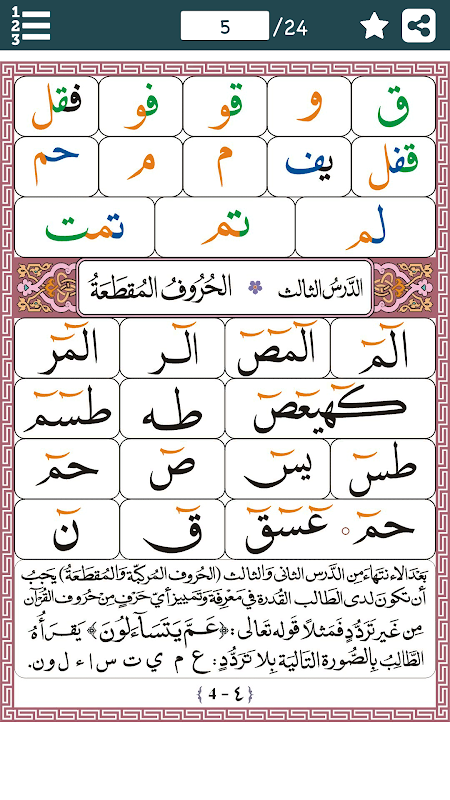 1 2 3 5 /24
ق و قو فو فقل
قفل يف م م حم
لم تم تمت
الدَّرْسُ الثَّالِث الحُرُوفُ المُقَطَّعَةُ
الٓمٓ الٓمٓصٓ الٓر الٓمٓر
كٓهيعٓصٓ طه طسٓمٓ
طسٓ يسٓ صٓ حمٓ
حمٓ عٓسٓقٓ قٓ نٓ
بَعْدَ الاِنتِهَاءِ مِن الدَّرْسِ الثَّانِي وَالثَّالِث (الحُرُوفِ المُرَكَّبَة وَالمُقَطَّعَة) يَجِبُ
أَن تَكُونَ لَدى الطَّالِبِ القُدرَة فِي مَعْرِفَةِ وَتَمْيِيزِ أَيِّ حَرْفٍ مِن حُرُوفِ القُرْآن
مِن غَيرِ تَرَدُّدٍ فَمَثَلاً قَولُه تَعَالى: ﴿عَمَّ يَتَسَآءَلُونَ﴾ يَقْرَأُهُ
الطَّالِبُ بِالصُّورَةِ التَّالِيَةِ بِلاَ تَرَدُّدٍ: ع م ي ت س ا ء ل و ن.
4 - ٤